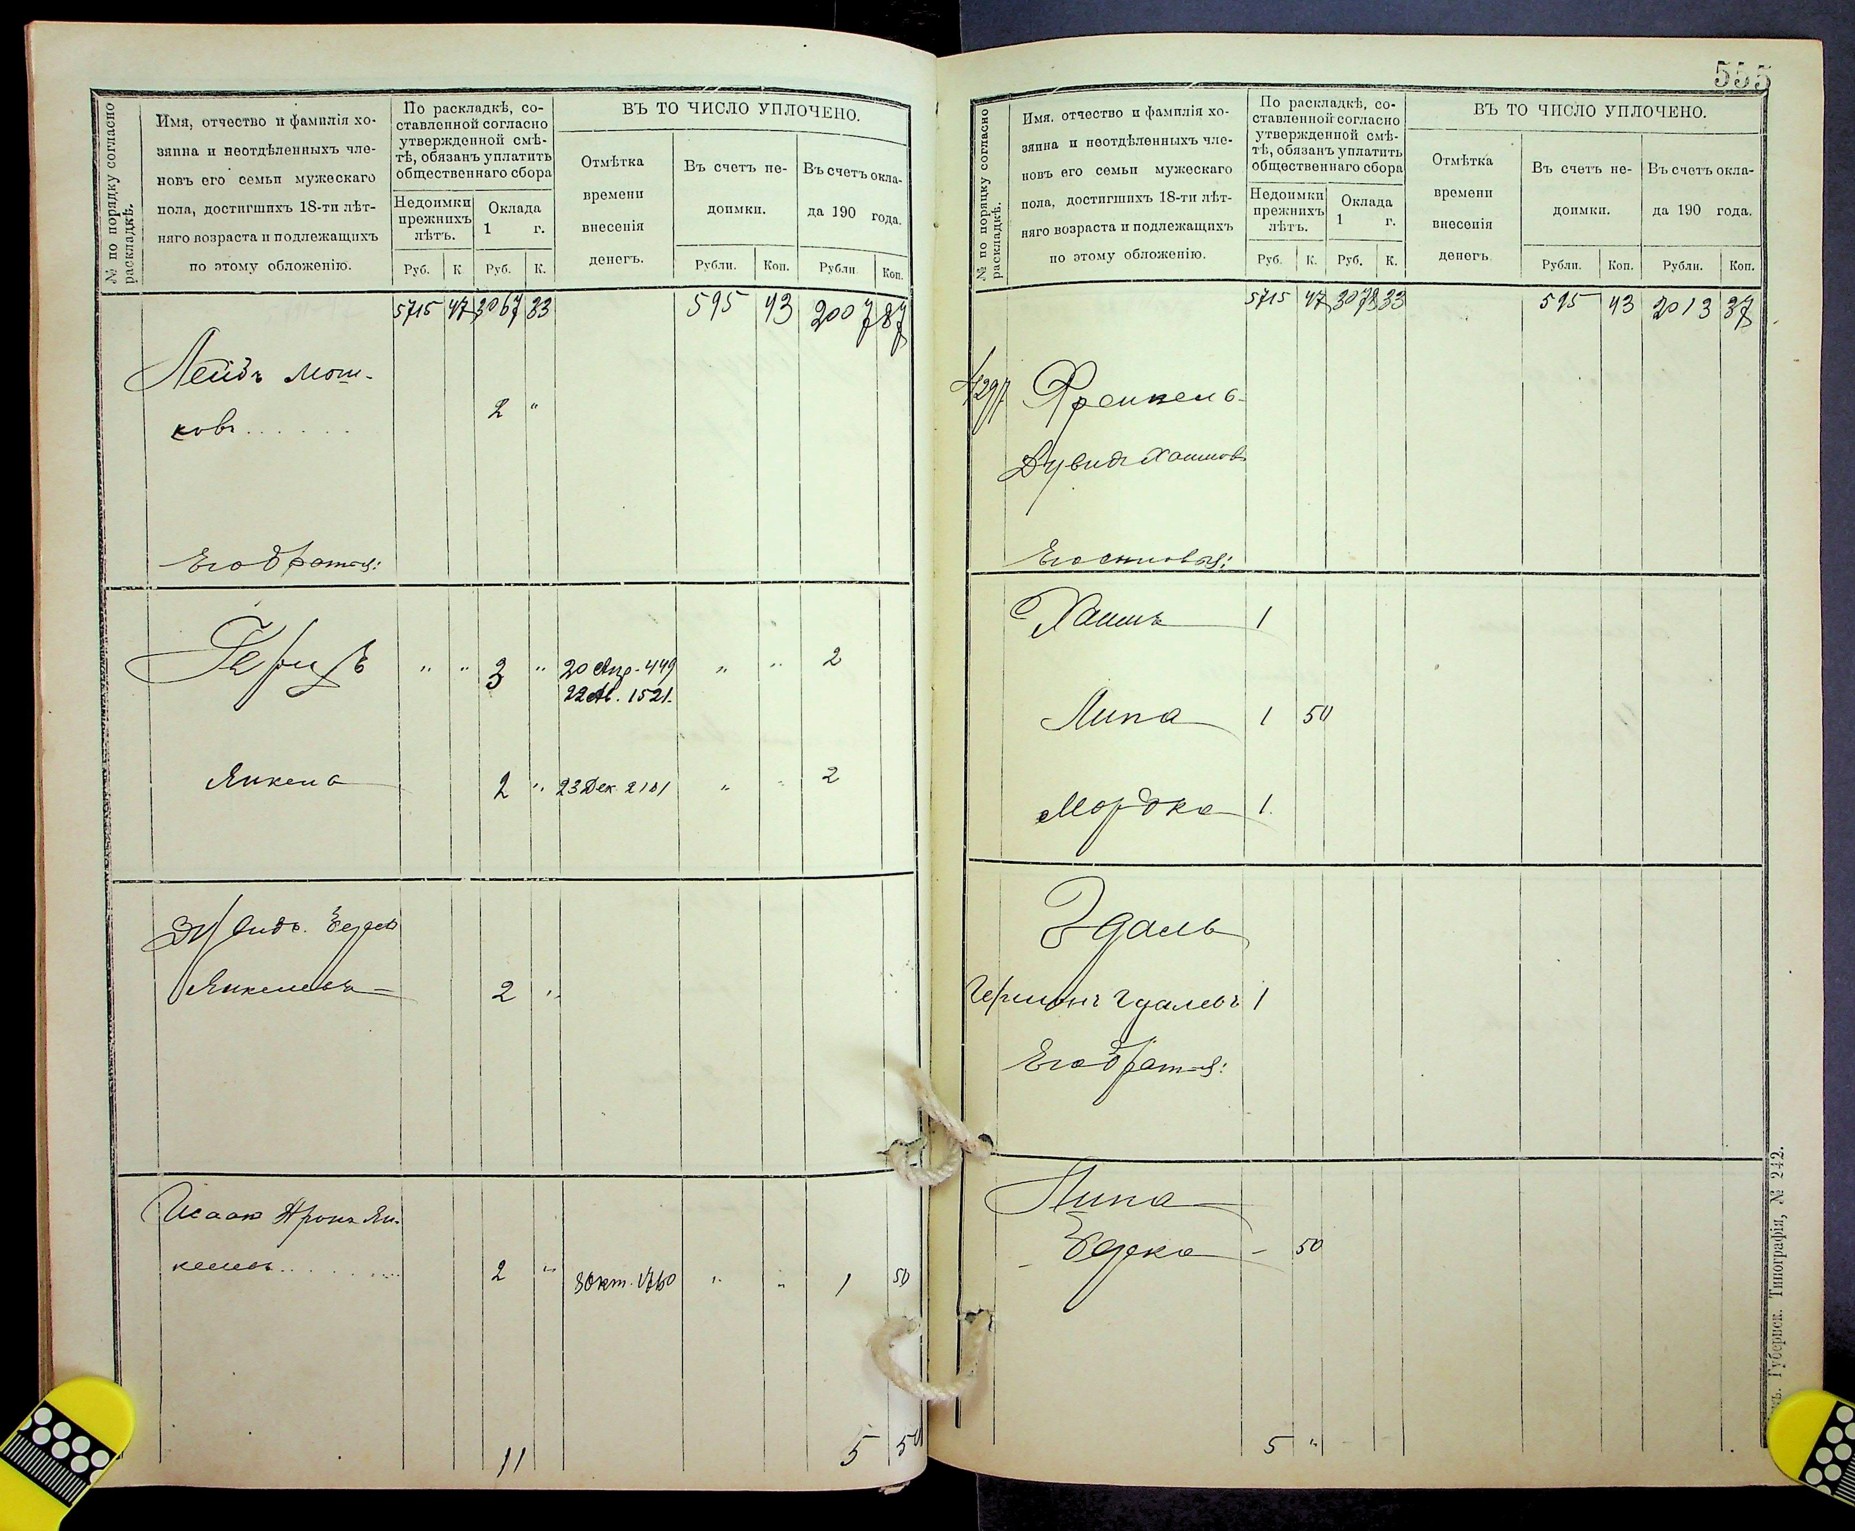 № по порядку согласно раскладкѣ.
Имя, отчество и фамилія хо-
зяина и неотдѣленныхъ чле-
новъ его семьи мужескаго
пола, достигшихъ 18-ти лѣт-
няго возраста и подлежащихъ
по этому обложенію.
По раскладкѣ, со-
ставленной согласно
утвержденной смѣ-
тѣ, обязанъ уплатить
общественнаго сбора
Недоимки
прежнихъ
лѣтъ.
Оклада
1 г.
Руб. К Руб. К.
ВЪ ТО ЧИСЛО УПЛОЧЕНО.
Отмѣтка
времени
внесенія
денегъ.
Въ счетъ не-
доимки.
Рубли. Коп.
Въ счетъ окла-
да 190 года.
Рубли Коп.
5715 47 3067 33 595 43 2007 87
Лейбъ Мош-
ковъ...... 2 "
Его братья:
Герцъ " " 3 " 20 Апр. 449 " " 2
22 1521.
Янкель 2 " 23 Дек. 2181 " " 2
Янкелевъ 2 "
Исаакъ Аронъ Ян-
келевъ........ 2 " 3 Окт. 1760 " " 1 50
11 5 50
555
№ по поряцку согласно раскладкѣ.
Имя. отчество и фамилія хо-
зяина и неотдѣленныхъ чле-
новъ его семьи мужескаго
пола, достигшихъ 18-ти лѣт-
няго возраста и подлежащихъ
по этому обложенію.
По раскладкѣ, со-
ставленной согласно
утвержденной смѣ-
тѣ, обязанъ уплатить
общественнаго сбора
Недоимки
прежнихъ
лѣтъ.
Оклада
1 г.
Руб. К. Руб. К.
ВЪ ТО ЧИСЛО УПЛОЧЕНО.
Отмѣтка
времени
внесенія
денегъ.
Въ счетъ не-
доимки.
Рубли. Коп.
Въ счетъ окла-
да 190 года.
Рубли. Коп.
5715 47 3078 33 595 43 2013 37
4297. Френкель
Дувидъ Хаимовъ
Его сыновья:
Хаимъ 1
Липа 1 50
Мордка 1.
Эдаль
1
Его братья:
Липа
- 50
5 "
Губернск. Типографія, № 242.